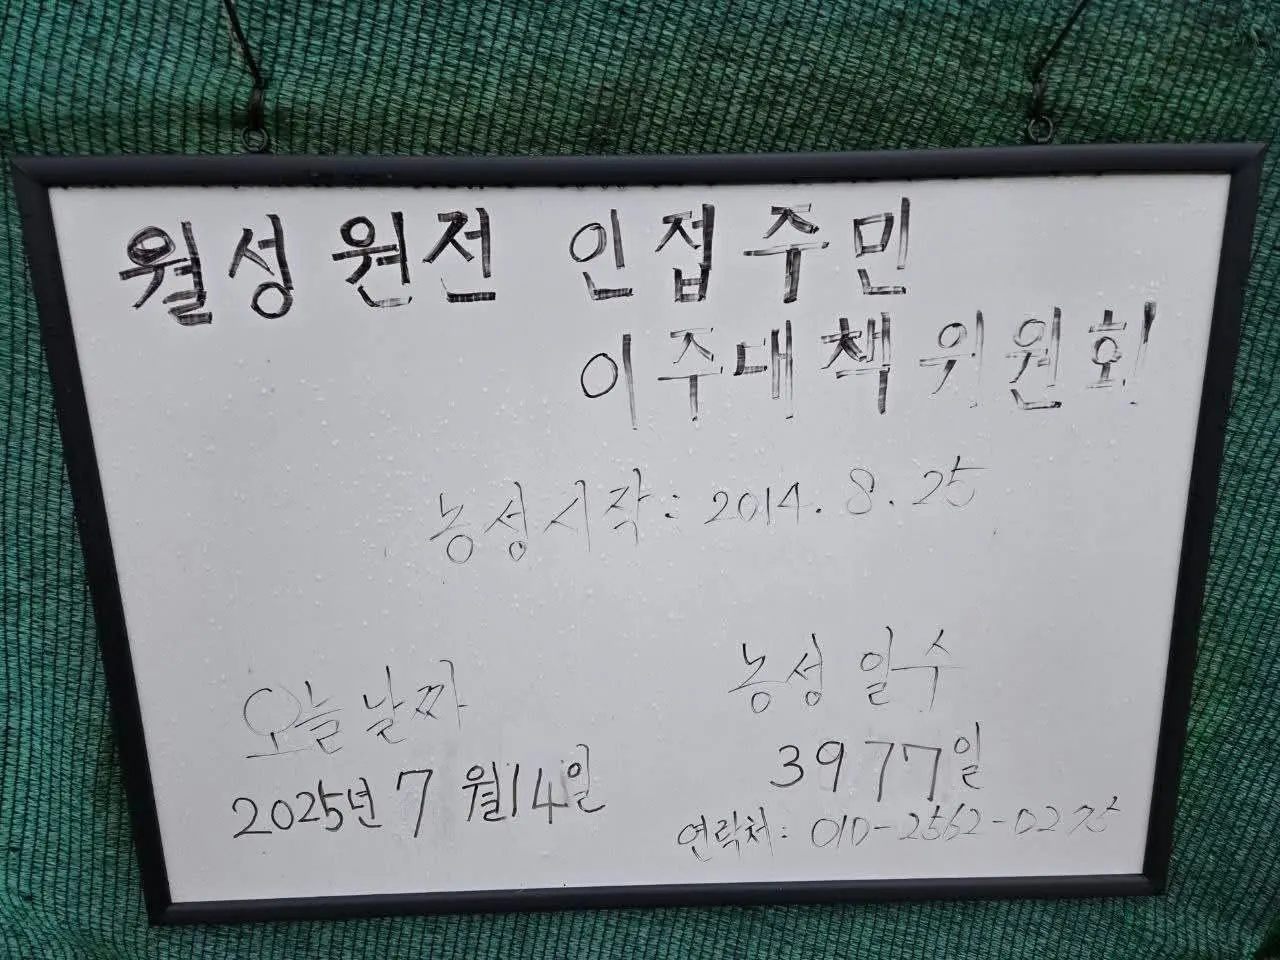 월성 원전 인접주민
이주대책위원회
농성시작: 2014. 8. 25
오늘날짜
2025년 7월14일
농성 일수
3977일
연락처: 010-2562-0275